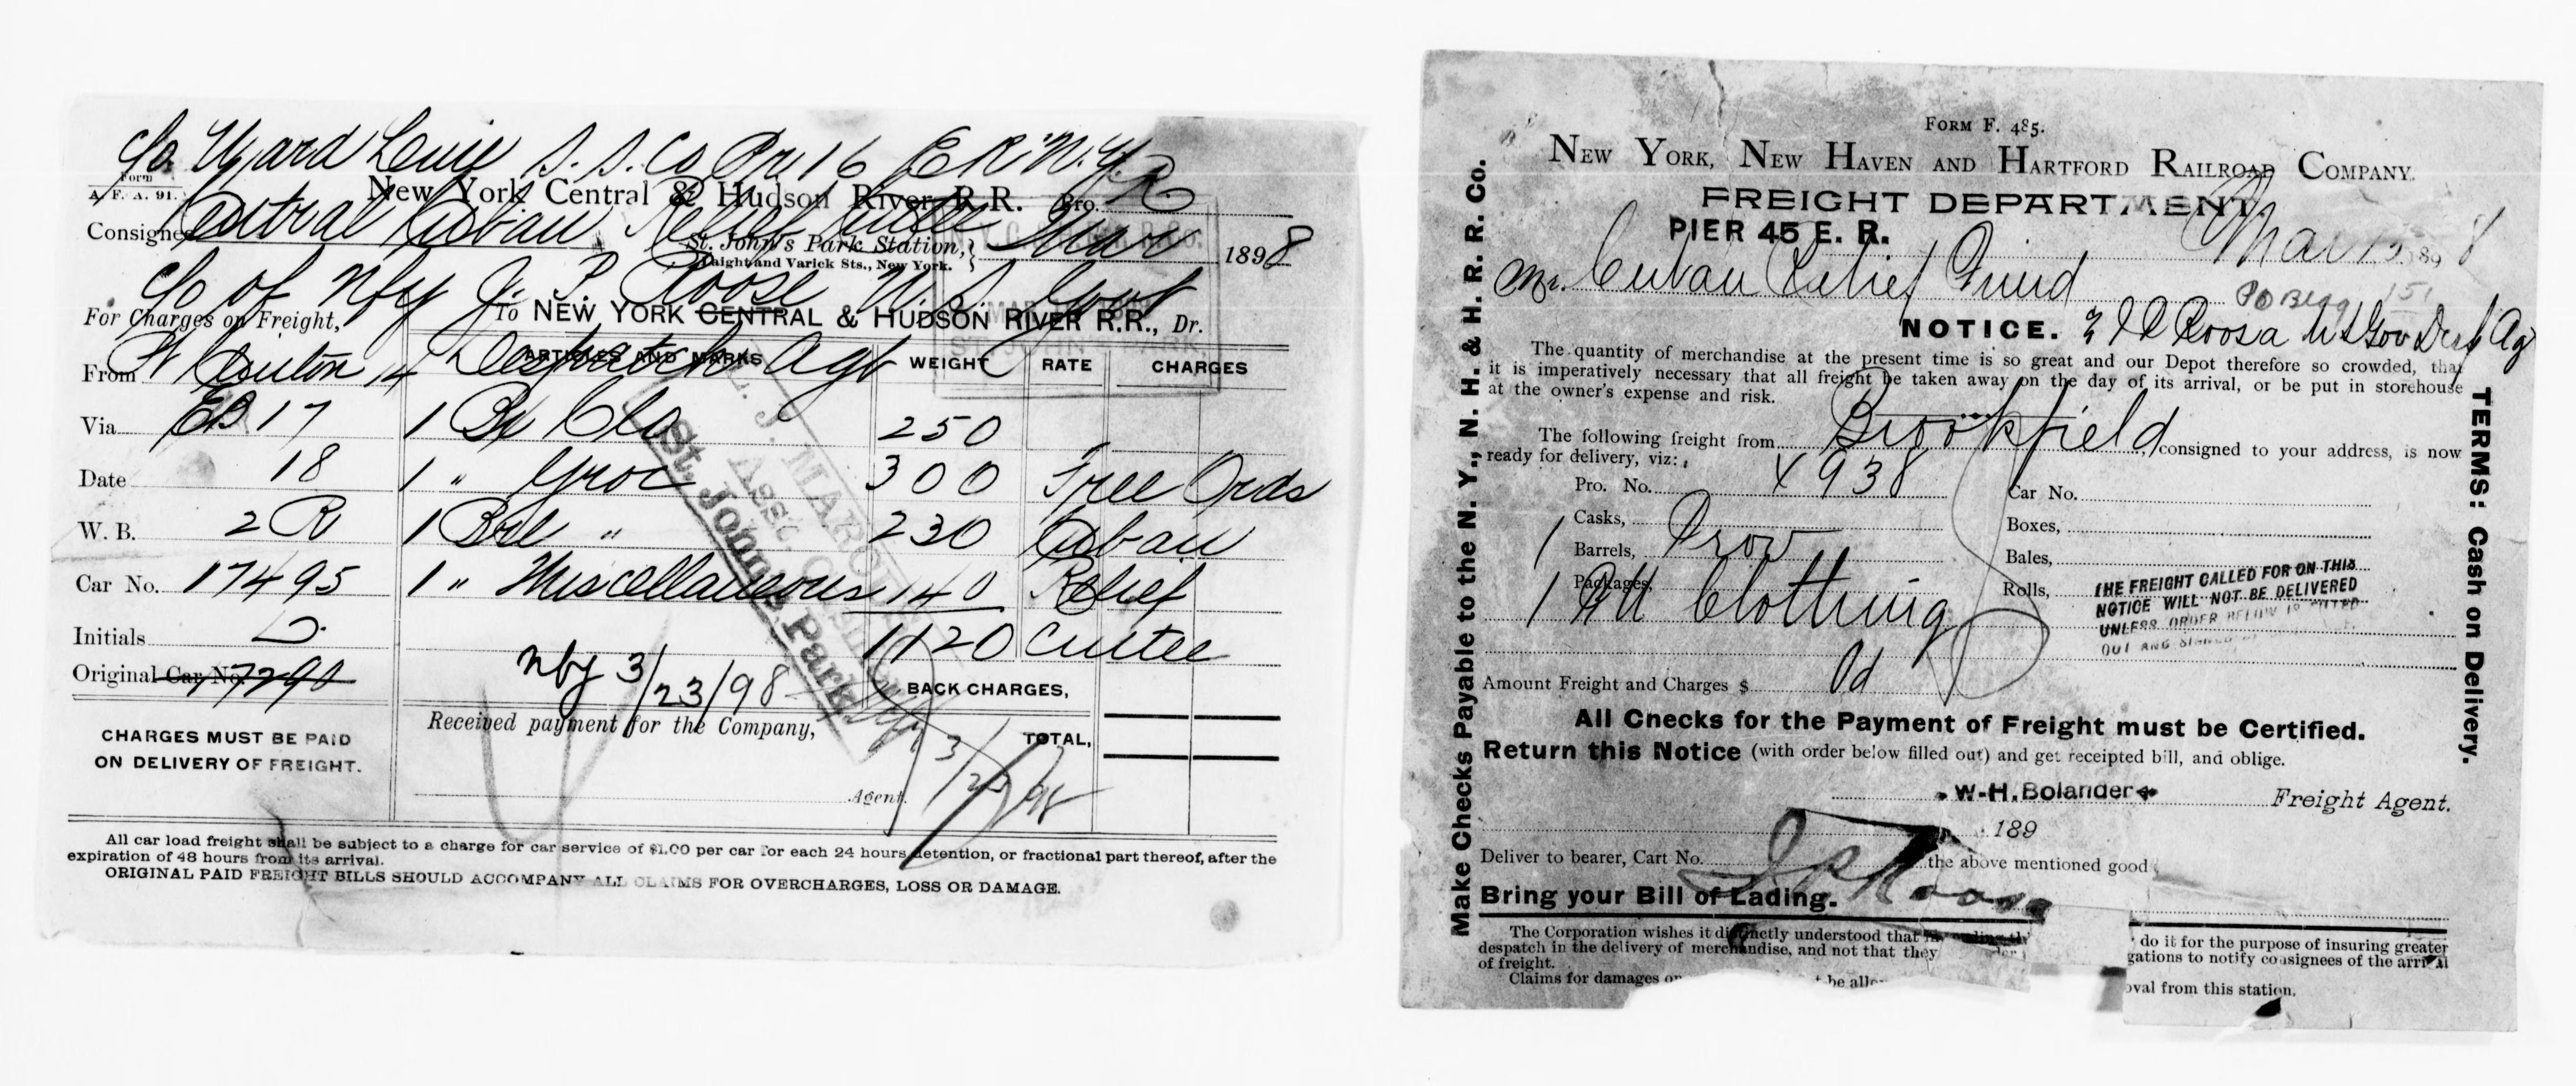 c/o Ward Line S. S. Co Pr 16 E R N. Y.
Form
A. F. A. 91.
New York Central & Hudson River R.R. Pro. R
Consignee Central Cuban Relief
St. John's Park Station,
Laight and Varick Sts., New York.
Mar 1898
c/o of Nfy J. P. Roose U. S. Govt
For Charges on Freight,
To NEW YORK CENTRAL & HUDSON RIVER R.R., Dr.
Despatch Agt
From 14
ARTICLES AND MARKS WEIGHT RATE CHARGES
Via EB 17 1 Bx Clo 250
Date 18 1 " Groc 300 Free Ords
W. B. 2 R 1 Brl " 230 Cuban
Car No. 17495 1 " Miscellaneous 140 Relief
Initials D. 1120 Cmtee
Original Car No.
Nfy 3/23/98
BACK CHARGES,
Received payment for the Company,
TOTAL,
CHARGES MUST BE PAID
ON DELIVERY OF FREIGHT.
Agent.
St. Johns Park
All car load freight shall be subject to a charge for car service of $1.00 per car for each 24 hours detention, or fractional part thereof, after the
expiration of 48 hours from its arrival.
ORIGINAL PAID FREIGHT BILLS SHOULD ACCOMPANY ALL CLAIMS FOR OVERCHARGES, LOSS OR DAMAGE.
FORM F. 485.
NEW YORK, NEW HAVEN AND HARTFORD RAILROAD COMPANY.
FREIGHT DEPARTMENT.
PIER 45 E. R.
Mar 15 1898
Mr. Cuban Relief Fund
PO Bldg 151
NOTICE. J P Roosa U S Gov Desp Ag
The quantity of merchandise at the present time is so great and our Depot therefore so crowded, that
it is imperatively necessary that all freight be taken away on the day of its arrival, or be put in storehouse
at the owner's expense and risk.
The following freight from Brookfield, consigned to your address, is now
ready for delivery, viz:
Pro. No. X938 Car No.
Casks, Boxes,
1 Barrels, Prov Bales,
1 Packages, Clothing Rolls,
THE FREIGHT CALLED FOR ON THIS
NOTICE WILL NOT BE DELIVERED
UNLESS ORDER BELOW IS FILLED
OUT AND SIGNED
Amount Freight and Charges $ Pd
All Checks for the Payment of Freight must be Certified.
Return this Notice (with order below filled out) and get receipted bill, and oblige.
W-H. Bolander Freight Agent.
189
Deliver to bearer, Cart No. the above mentioned good
J P Roosa
Bring your Bill of Lading.
The Corporation wishes it distinctly understood that do it for the purpose of insuring greater
despatch in the delivery of merchandise, and not that they gations to notify consignees of the arrival
of freight.
Claims for damages or be allo oval from this station.
Make Checks Payable to the N. Y., N. H. & H. R. R. Co.
TERMS: Cash on Delivery.